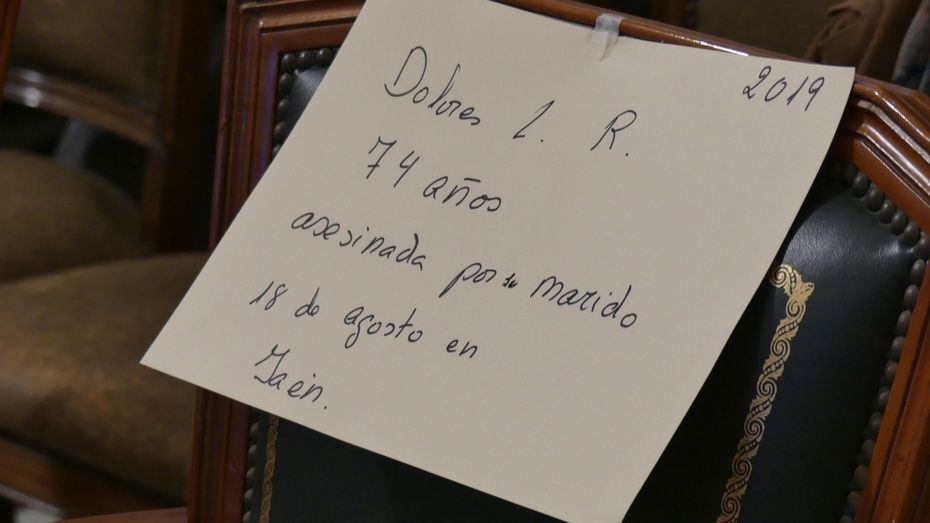 2019
Dolores L. R.
74 años
asesinada por su marido
18 de agosto en
Jaén.